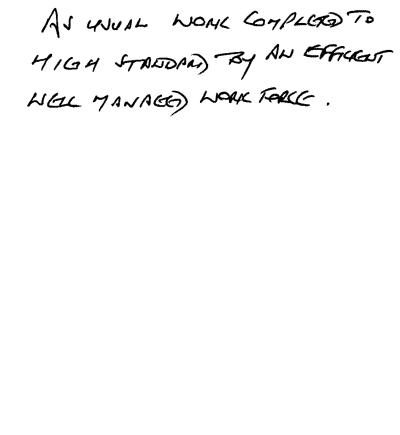 AS USUAL WORK COMPLETED TO
HIGH STANDARD BY AN EFFICIENT
WELL MANAGED WORK FORCE.